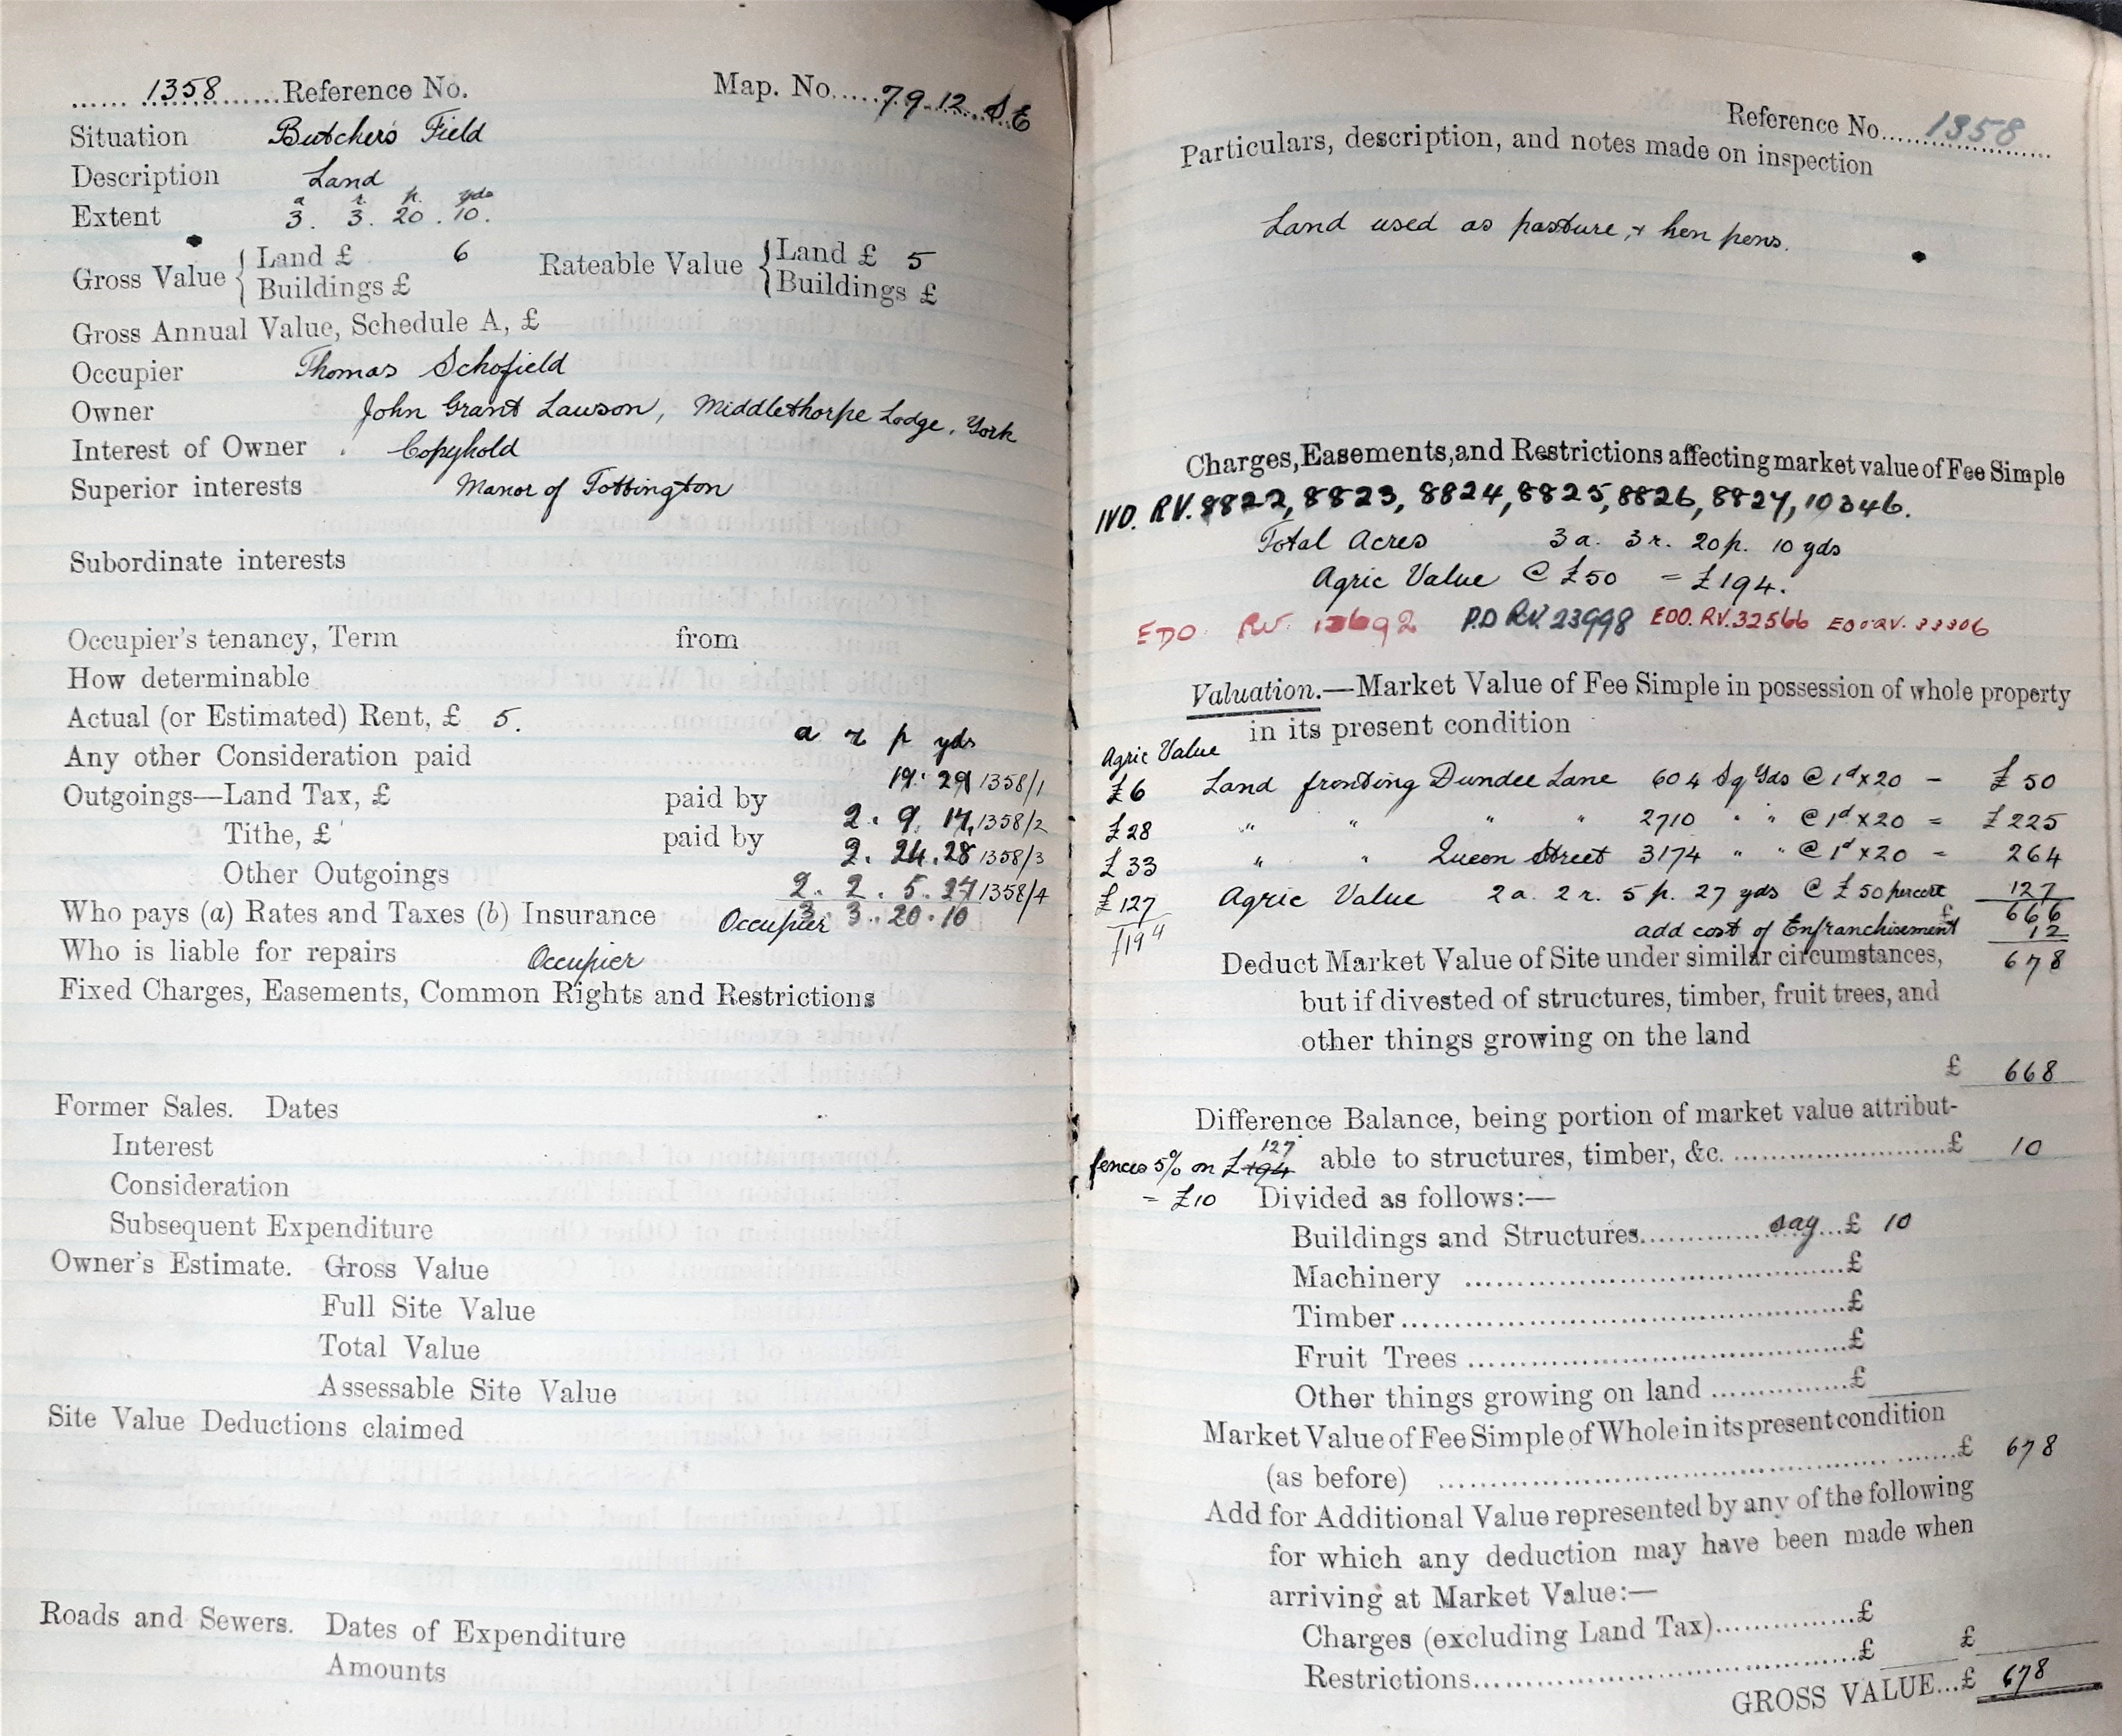 ...... 1358 ...... Reference No. Map. No..... 79.12. S E
Situation Butchers Field
Description Land
a r. p. yds
Extent 3. 3. 20. 10.
Gross Value { Land £ 6 Rateable Value { Land £ 5
Buildings £ Buildings £
Gross Annual Value, Schedule A, £
Occupier Thomas Schofield
Owner John Grant Lawson, Middlethorpe Lodge, York
Interest of Owner Copyhold
Superior interests Manor of Tottington
Subordinate interests
Occupier's tenancy, Term from
How determinable
Actual (or Estimated) Rent, £ 5.
a r p yds
Any other Consideration paid
19. 29 1358/1
Outgoings—Land Tax, £ paid by
2. 9. 17. 1358/2
Tithe, £ paid by
2. 24. 28 1358/3
Other Outgoings
2. 2. 5. 27 1358/4
Who pays (a) Rates and Taxes (b) Insurance Occupier 3. 3. 20. 10
Who is liable for repairs Occupier
Fixed Charges, Easements, Common Rights and Restrictions
Former Sales. Dates
Interest
Consideration
Subsequent Expenditure
Owner's Estimate. Gross Value
Full Site Value
Total Value
Assessable Site Value
Site Value Deductions claimed
Roads and Sewers. Dates of Expenditure
Amounts
Reference No..... 1358
Particulars, description, and notes made on inspection
Land used as pasture, + hen pens.
Charges, Easements, and Restrictions affecting market value of Fee Simple
IVD. RV. 8822, 8823, 8824, 8825, 8826, 8827, 10346.
Total Acres 3 a. 3 r. 20 p. 10 yds
Agric Value @ £50 = £194.
EDO. RV. P.D RV. 23998 EDO. RV. 32566
Valuation.—Market Value of Fee Simple in possession of whole property
in its present condition
Agric Value
£6 Land fronting Dundee Lane 604 Sq Yds @ 1d x 20 - £ 50
£28 " " " " 2710 " " @ 1d x 20 = £ 225
£33 " " Queen Street 3174 " " @ 1d x 20 = 264
£127 Agric Value 2 a. 2 r. 5 p. 27 yds @ £50 per 127
£ 666
£194 add cost of Enfranchisement 12
Deduct Market Value of Site under similar circumstances, 678
but if divested of structures, timber, fruit trees, and
other things growing on the land
£ 668
Difference Balance, being portion of market value attribut-
127
fences 5% on £194 able to structures, timber, &c. ........ £ 10
= £10 Divided as follows:—
Buildings and Structures........ say... £ 10
Machinery ........ £
Timber........ £
Fruit Trees ........ £
Other things growing on land ........ £
Market Value of Fee Simple of Whole in its present condition
(as before) ........ £ 678
Add for Additional Value represented by any of the following
for which any deduction may have been made when
arriving at Market Value:—
Charges (excluding Land Tax)........ £
Restrictions........ £ £
GROSS VALUE... £ 678